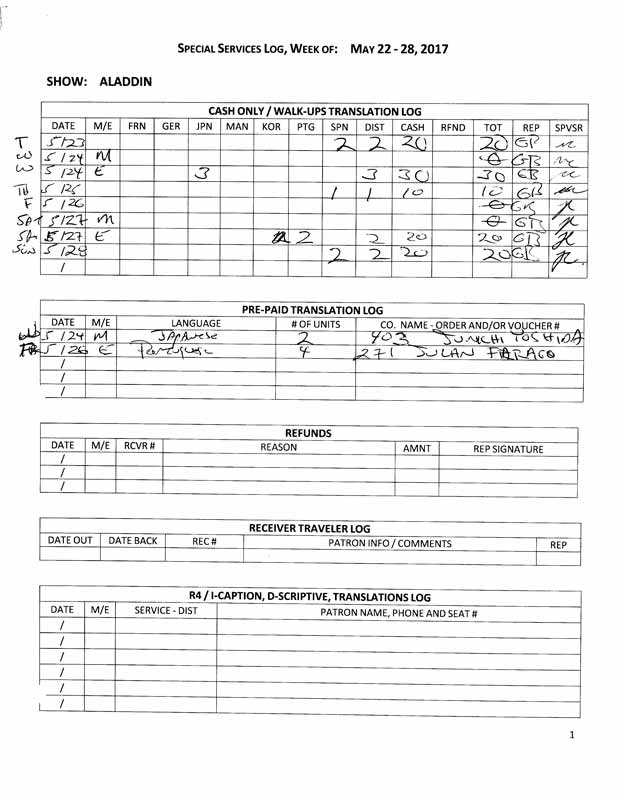 SPECIAL SERVICES LOG, WEEK OF: MAY 22 - 28, 2017
SHOW: ALADDIN
CASH ONLY / WALK-UPS TRANSLATION LOG
DATE M/E FRN GER JPN MAN KOR PTG SPN DIST CASH RFND TOT REP SPVSR
T 5/23 2 2 20 20 GB
W 5/24 M 0 GB
W 5/24 E 3 3 30 30 GB
TH 5/25 1 1 10 10 GB
F 5/26 0 GB
SAT 5/27 M 0 GB
SA 5/27 E 2 2 20 20 GB
SUN 5/28 2 2 20 20 GB
/
PRE-PAID TRANSLATION LOG
DATE M/E LANGUAGE # OF UNITS CO. NAME - ORDER AND/OR VOUCHER #
5/24 M Japanese 2 403 JUNICHI YOSHIDA
5/26 E Portuguese 4 271 JULAN FARAGO
/
/
REFUNDS
DATE M/E RCVR # REASON AMNT REP SIGNATURE
/
/
/
RECEIVER TRAVELER LOG
DATE OUT DATE BACK REC # PATRON INFO / COMMENTS REP
R4 / I-CAPTION, D-SCRIPTIVE, TRANSLATIONS LOG
DATE M/E SERVICE - DIST PATRON NAME, PHONE AND SEAT #
/
/
/
/
/
/
1